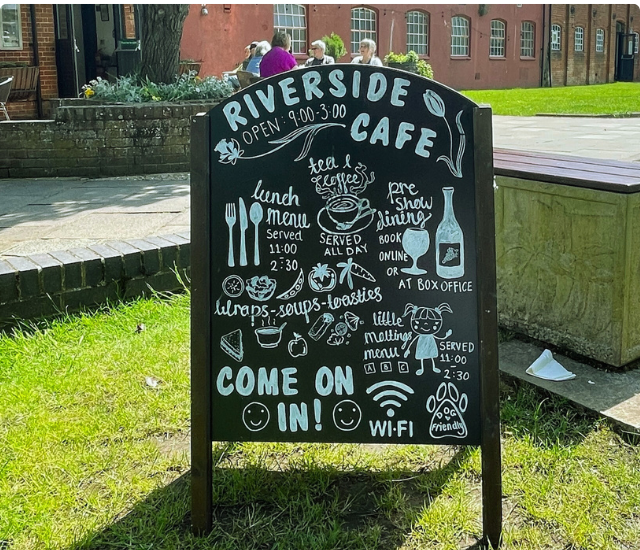 RIVERSIDE
CAFE
OPEN: 9:00-3:00
tea &
coffee
SERVED
ALL DAY
lunch
menu
Served
11:00
2-30
pre
show
dining
BOOK
ONLINE
OR
AT BOX OFFICE
wraps-soups-toasties
little
Maltings
menu
A B C
SERVED
11:00
2-30
COME ON
IN!
WI-FI
DOG
Friendly